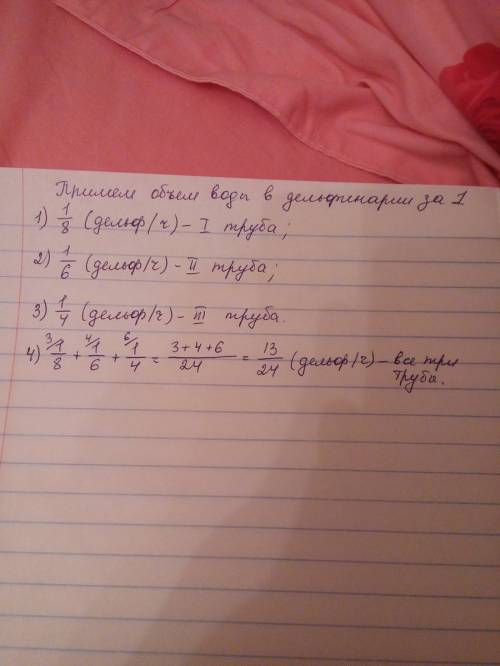 Примем объем воды в дельфинарии за 1
1) 1/8 (дельф/ч) - I труба;
2) 1/6 (дельф/ч) - II труба;
3) 1/4 (дельф/ч) - III труба.
4) 3/1/8 + 4/1/6 + 6/1/4 = 3+4+6/24 = 13/24 (дельф/ч) - все три
труба.